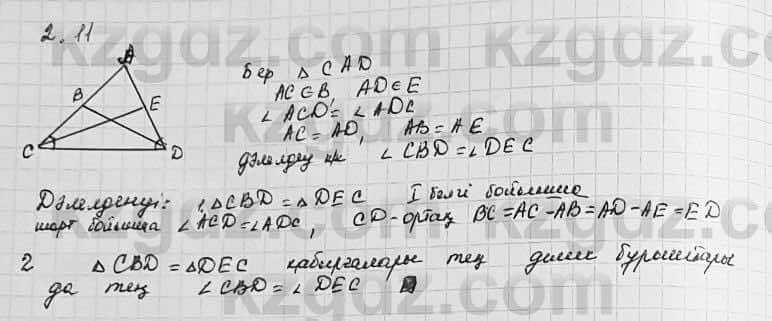 2.11
A
B
E
C
D
бер △ CAD
AC∈B AD∈E
∠ ACD = ∠ ADC
AC = AD, AB = AE
дәлелдеу кк ∠ CBD = ∠ DEC
Дәлелденуі: 1. △ CBD = △ DEC I белгі бойынша
шарт бойынша ∠ ACD = ∠ ADC, CD-ортақ BC = AC - AB = AD - AE = ED
2 △ CBD = △ DEC қабырғалары тең демек бұрыштары
да тең ∠ CBD = ∠ DEC
kzgdz.com